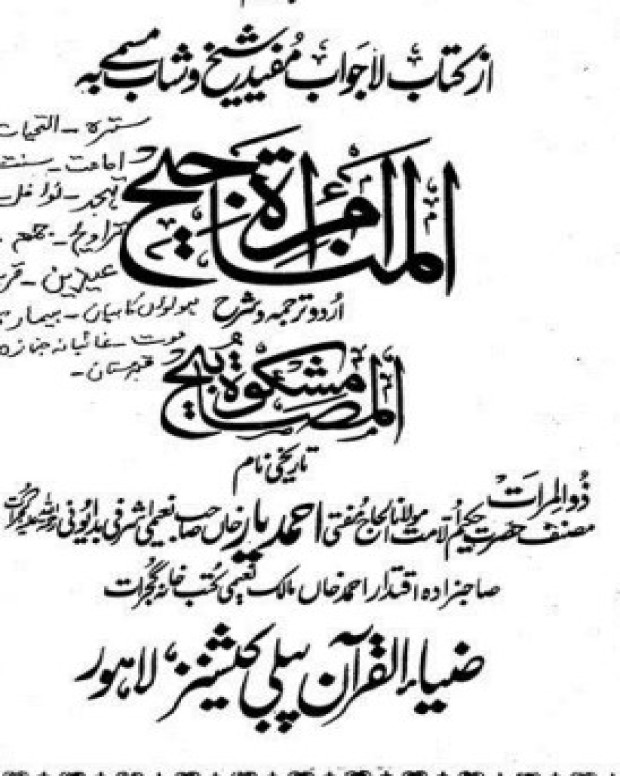 از کتاب لاجواب مفید شیخ و شاب مسمے بہ
مرأة المناجیح
اردو ترجمہ و شرح
مشکوٰة المصابیح
تاریخی نام
ذوالمرات
مصنف حضرت حکیم الامت مولانا الحاج مفتی احمد یار خاں صاحب نعیمی اشرفی بدایونی رحمۃ اللہ علیہ گجرات
صاحبزادہ اقتدار احمد خاں مالک نعیمی کتب خانہ گجرات
ضیاء القرآن پبلی کیشنز، لاہور
سترہ - التحیات
امامت - سنت
تہجد - نوافل
تراویح - جمعہ
عیدین - قر
پھولوں کا بیان - بیمار
موت - غائبانہ جنازہ
قبرستان -